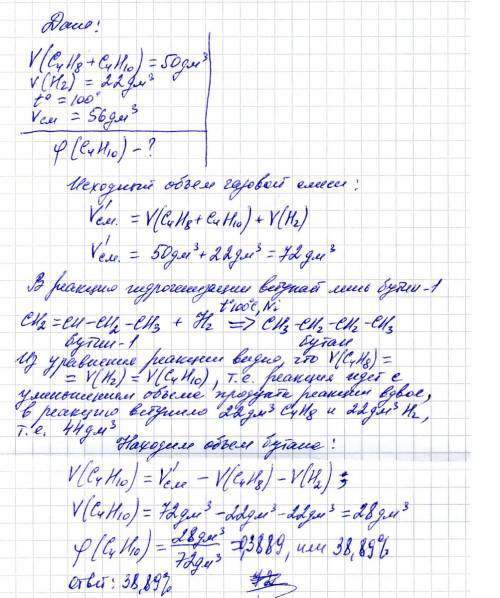 Дано:
V(C₄H₈+C₄H₁₀) = 50дм³
V(H₂) = 22дм³
t° = 100°
Vсм = 56дм³
φ(C₄H₁₀) - ?
Исходный объем газовой смеси:
V'см. = V(C₄H₈+C₄H₁₀) + V(H₂)
V'см. = 50дм³ + 22дм³ = 72дм³
В реакцию гидрогенизации вступает лишь бутен-1
t°100°C, Ni
CH₂=CH-CH₂-CH₃ + H₂ => CH₃-CH₂-CH₂-CH₃
бутен-1 бутан
Из уравнения реакции видно, что V(C₄H₈) =
= V(H₂) = V(C₄H₁₀), т.е. реакция идет с
уменьшением объема продукта реакции вдвое,
в реакцию вступило 22дм³ C₄H₈ и 22дм³ H₂,
т.е. 44дм³
Находим объем бутана:
V(C₄H₁₀) = V'см - V(C₄H₈) - V(H₂);
V(C₄H₁₀) = 72дм³ - 22дм³ - 22дм³ = 28дм³
φ(C₄H₁₀) = 28дм³/72дм³ = 0,3889, или 38,89%
Ответ: 38,89%